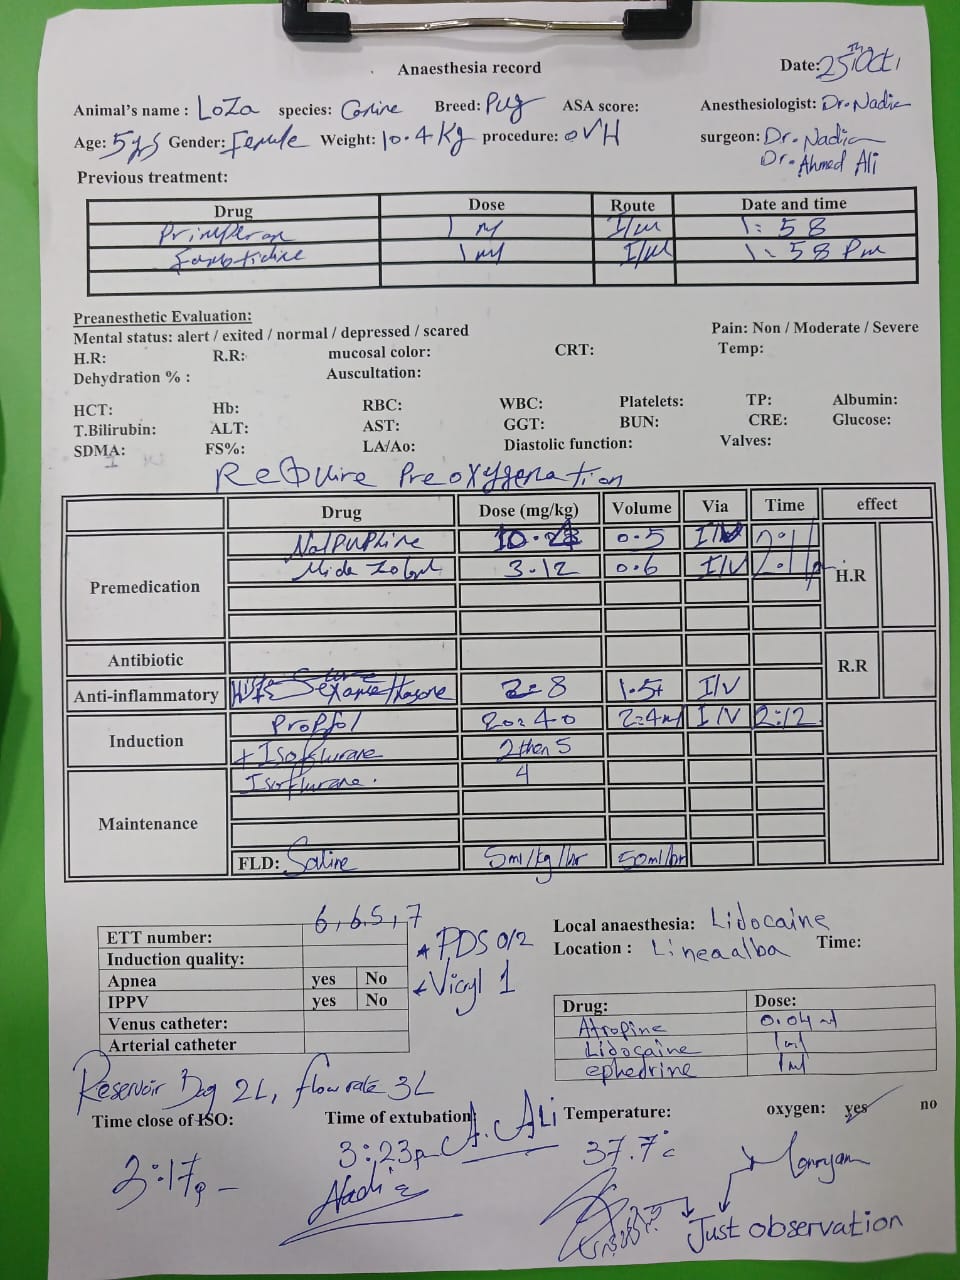 Anaesthesia record
Date: 25th Oct,
Animal's name : LoZa species: Canine Breed: Pug ASA score: Anesthesiologist: Dr. Nadia
Age: 5 yrs Gender: Female Weight: 10.4 Kg procedure: OVH surgeon: Dr. Nadia
Dr. Ahmed Ali
Previous treatment:
Drug Dose Route Date and time
Primperan 1 ml I/M 1:58
Famotidine 1 ml I/M 1:58 Pm
Preanesthetic Evaluation:
Mental status: alert / exited / normal / depressed / scared Pain: Non / Moderate / Severe
H.R: R.R: mucosal color: CRT: Temp:
Dehydration % : Auscultation:
HCT: Hb: RBC: WBC: Platelets: TP: Albumin:
T.Bilirubin: ALT: AST: GGT: BUN: CRE: Glucose:
SDMA: FS%: LA/Ao: Diastolic function: Valves:
Require Preoxygenation
Drug Dose (mg/kg) Volume Via Time effect
Premedication
Nalbuphine 0.5 I/V H.R
Midazolam 3.12 0.6 I/V
Antibiotic R.R
Anti-inflammatory Dexamethasone 2=8 I/V
Induction Propfol 20=40 2=4ml I/V 2:12
+ Isoflurane 2 then 5
Maintenance Isoflurane. 4
FLD: Saline 5ml/kg/hr 50ml/hr
ETT number: 6, 6.5, 7
Induction quality:
Apnea yes No
IPPV yes No
Venus catheter:
Arterial catheter
* PDS 0/2
* Vicryl 1
Local anaesthesia: Lidocaine
Location : Linea alba Time:
Drug: Dose:
Atropine 0.04 ml
Lidocaine 1ml
ephedrine 1ml
Reservoir Bag 2L, flow rate 3L
Time close of ISO: Time of extubation: A. Ali Temperature: oxygen: yes no
3:17p 3:23p 37.7°c
Nadia
Just observation